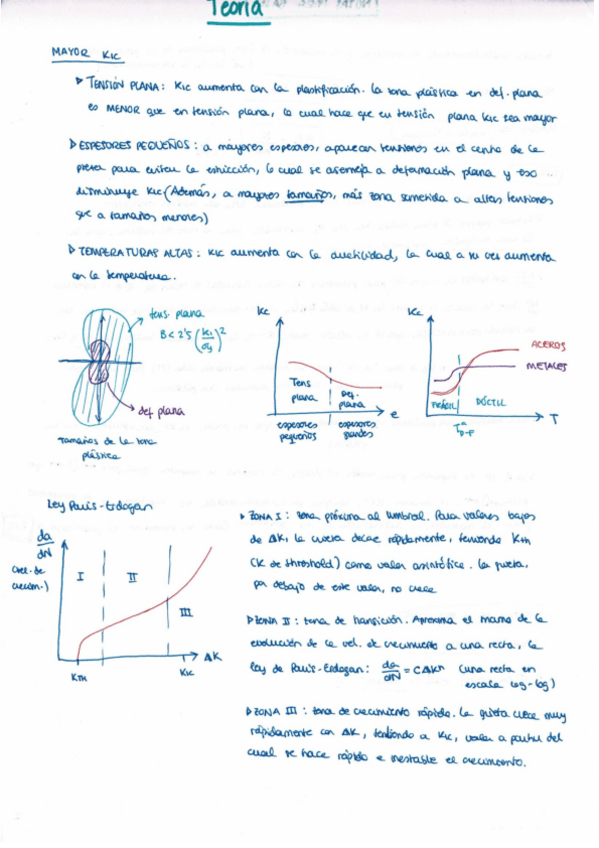 Teoría
MAYOR KIC
▷ TENSIÓN PLANA: KIC aumenta con la plastificación. La zona plástica en def. plana
es MENOR que en tensión plana, lo cual hace que en tensión plana KIC sea mayor
▷ ESPESORES PEQUEÑOS: a mayores espesores, aparecen tensiones en el centro de la
pieza para evitar la estricción, lo cual se asemeja a deformación plana y eso
disminuye KIC (Además, a mayores tamaños, más zona sometida a altas tensiones
que a tamaños menores)
▷ TEMPERATURAS ALTAS: KIC aumenta con la ductilidad, la cual a su vez aumenta
con la temperatura.
tens. plana
B < 2'5 (KC/σy)²
def. plana
Tamaños de la zona
plástica
KC
Tens
plana
Def.
plana
e
espesores
pequeños
espesores
grandes
KC
ACEROS
METALES
FRÁGIL
DÚCTIL
T
Ley Paris-Erdogan
da/dN
I
II
III
ΔK
KTH
KIC
▷ ZONA I: zona próxima al umbral. Para valores bajos
de ΔK, la curva decae rápidamente, teniendo KTH
(K de threshold) como valor asintótico. La grieta,
por debajo de este valor, no crece
▷ ZONA II: zona de transición. Aproxima el mismo de la
evolución de la vel. de crecimiento a una recta, la
ley de Paris-Erdogan: da/dN = CΔKⁿ (una recta en
escala log-log)
▷ ZONA III: zona de crecimiento rápido. La grieta crece muy
rápidamente con ΔK, tendiendo a KIC, valor a partir del
cual se hace rápido e inestable el crecimiento.